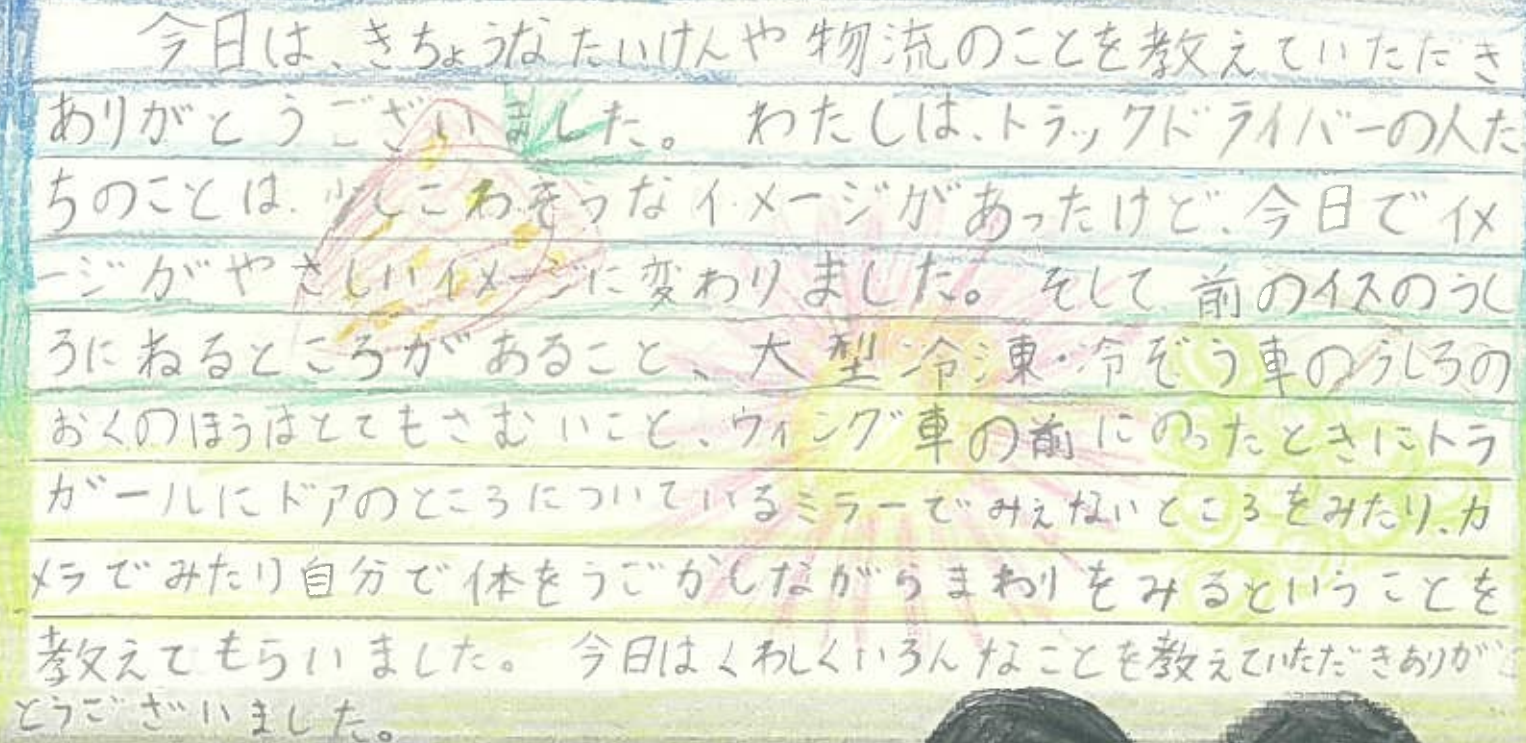 今日は、きちょうなたいけんや物流のことを教えていただき
ありがとうございました。わたしは、トラックドライバーの人た
ちのことは、少しこわそうなイメージがあったけど、今日でイメ
ージがやさしいイメージに変わりました。そして前のイスのうし
ろにねるところがあること、大型冷凍・冷ぞう車のうしろの
おくのほうはとてもさむいこと、ウィング車の前にのったときにトラ
ガールにドアのところについているミラーでみえないところをみたり、カ
メラでみたり自分で体をうごかしながらまわりをみるということを
教えてもらいました。今日はくわしくいろんなことを教えていただきありが
とうございました。